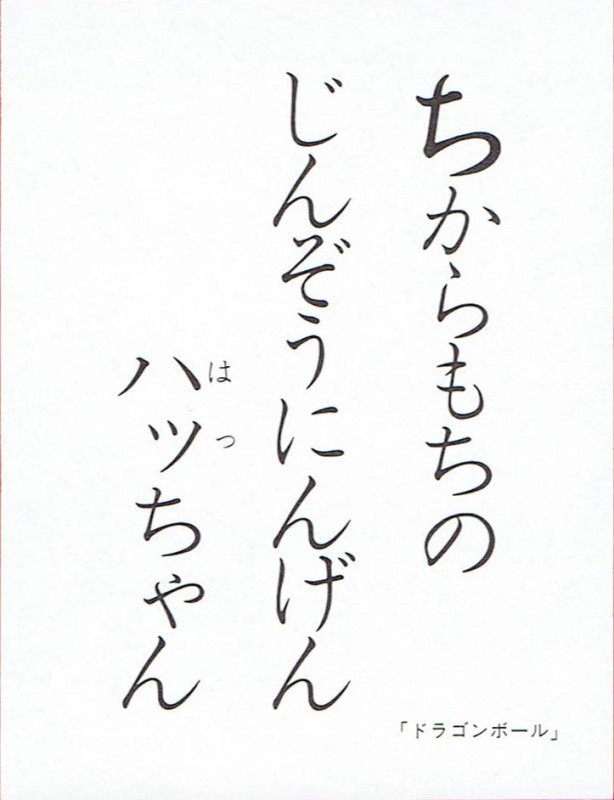 ちからもちの
じんぞうにんげん
ハツちゃん
はっ
「ドラゴンボール」